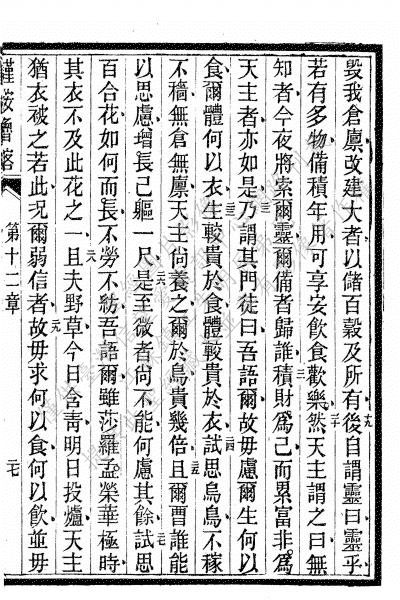 毀我倉廩改建大者以儲百穀及所有後自謂靈曰靈乎
若有多物備積年用可享安飲食歡樂然天主謂之曰無
知者今夜將索爾靈爾備者歸誰積財爲己而累富非爲
天主者亦如是乃謂其門徒曰吾語爾故毋慮爾生何以
食爾體何以衣生較貴於食體較貴於衣試思烏鳥不稼
不穡無倉無廩天主尙養之爾於鳥貴幾倍且爾曹誰能
以思慮增長己軀一尺是至微者尙不能何慮其餘試思
百合花如何而長不勞不紡吾語爾雖莎羅孟榮華極時
其衣不及此花之一且夫野草今日含靑明日投爐天主
猶衣被之若此况爾弱信者故毋求何以食何以飲並毋
第十二章